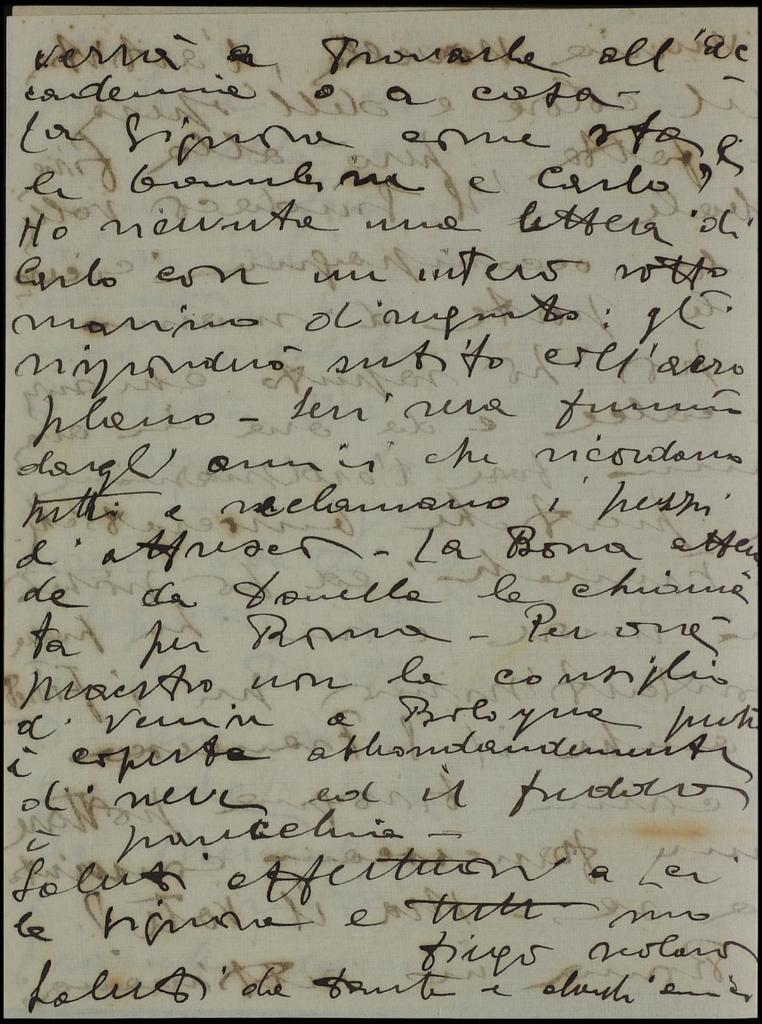 verrà a trovarla all'Ac
cademia o a casa -
La Signora come sta,
le bambine e Carlo?
Ho ricevuta una lettera di
Carlo con un intero sotto
marino disegnato: gli
risponderò subito coll'aero
plano - Ieri sera fummo
dagli amici che ricordano
tutti e reclamano i pezzi
d'affresco - La Bona atten
de da la chiama
ta per Roma - Per ora
maestro non la consiglio
di venire a Bologna
è coperta abbondandemente
di neve ed il freddo
è parecchio -
Saluti affettuosi a Lei
la Signora e tutti suo
scolaro
Saluti da Dante e dagli amici